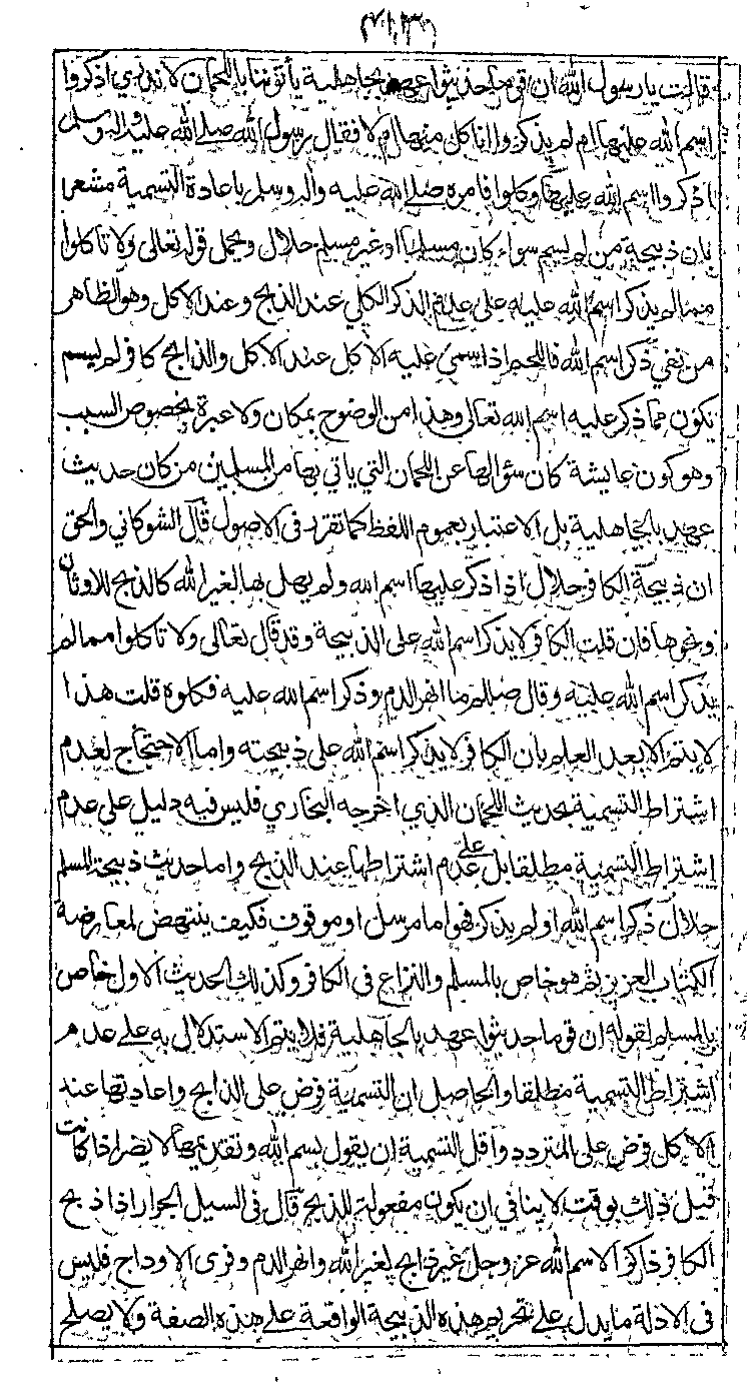 قالت يارسول الله ان قوما حديثوا عهد بجاهلية يأتوننا باللحمان لا ندري اذكروا
اسم الله عليها ام لم يذكروا انا كل منها ام لا فقال رسول الله صلى الله عليه واله وسلم
اذكروا اسم الله عليها وكلوا فامره صلى الله عليه واله وسلم باعادة التسمية مشعرا
بان ذبيحة من لم يسم سواء كان مسلما او غير مسلم حلال ويحمل قوله تعالى ولا تاكلوا
مما لم يذكر اسم الله عليه على عدم الذكر الكلي عند الذبح وعند الاكل وهو الظاهر
من نفي ذكر اسم الله فاللحم اذا سمى عليه الاكل عند الاكل والذابح كافر لم يسم
يكون مما ذكر عليه اسم الله تعالى وهذا من الوضوح بمكان ولا عبرة بخصوص السبب
وهو كون عايشة كان سؤالها عن اللحمان التي ياتي بها من المسلمين من كان حديث
عهد بالجاهلية بل الاعتبار بعموم اللفظ كما تقرر فى الاصول قال الشوكاني والحق
ان ذبيحة الكافر حلال اذا ذكر عليها اسم الله ولم يهل بها لغير الله كالذبح للاوثان
ونحوها فان قلت الكافر لا يذكر اسم الله على الذبيحة وقد قال تعالى ولا تاكلوا مما لم
يذكر اسم الله عليه وقال صللم ما انهر الدم وذكر اسم الله عليه فكلوه قلت هذا
لا يتم الا بعد العلم بان الكافر لا يذكر اسم الله على ذبيحته واما الاحتجاج لعدم
اشتراط التسمية بحديث اللحمان الذي اخرجه البخاري فليس فيه دليل على عدم
اشتراط التسمية مطلقا بل على عدم اشتراطها عند الذبح واما حديث ذبيحة المسلم
حلال ذكر اسم الله او لم يذكر فهو اما مرسل او موقوف فكيف ينتهض لمعارضة
الكتاب العزيز ثم هو خاص بالمسلم والنزاع فى الكافر وكذلك الحديث الاول خاص
بالمسلم لقوله ان قوما حديثوا عهد بالجاهلية فلا يتم الاستدلال به على عدم
اشتراط التسمية مطلقا والحاصل ان التسمية فرض على الذابح واعادتها عند
الاكل فرض على المتردد واقل التسمية ان يقول بسم الله وتقديمها لا يضر اذا كانت
قبل ذلك بوقت لا ينافي ان يكون مفعولة للذبح قال فى السيل الجرار اذا ذبح
الكافر ذاكرا لاسم الله عز وجل غير ذابح لغير الله وانهر الدم وفرى الاوداج فليس
فى الادلة ما يدل على تحريم هذه الذبيحة الواقعة على هذه الصفة ولا يصلح